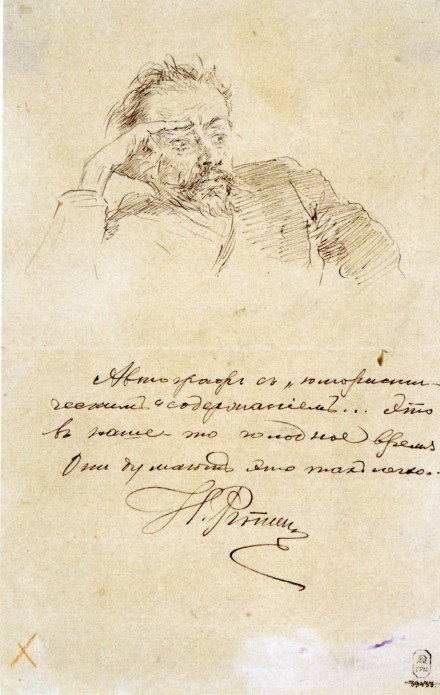 Автографъ съ „юмористи-
ческимъ“ содержаніемъ... Это
въ наше-то время
Они думаютъ это такъ легко..
И. Рѣпинъ
ГРМ